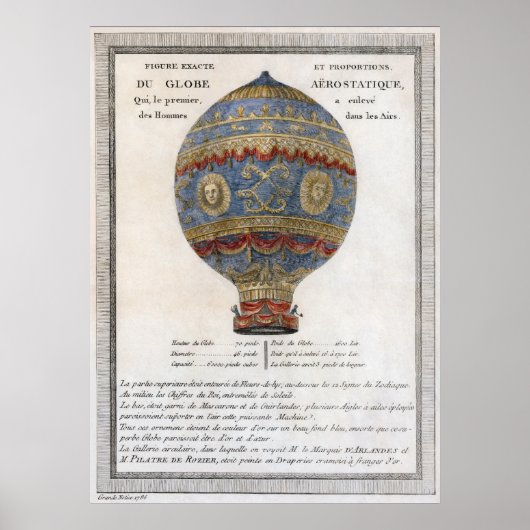 FIGURE EXACTE ET PROPORTIONS.
DU GLOBE AËROSTATIQUE,
Qui, le premier, a enlevé
des Hommes dans les Airs.
Hauteur du Globe 70 pieds Poids du Globe 1600 Liv.
Diametre 46 pieds Poids qu'il a enlevé 16 à 1700 Liv.
Capacité 60000 pieds cubes La Gallerie avoit 3 pieds de largeur.
La partie supérieure étoit entourée de Fleurs-de-lys, au-dessous les 12 Signes du Zodiaque.
Au milieu les Chiffres du Roi, entremêlés de Soleils.
Le bas, étoit garni de Mascarons et de Guirlandes, plusieurs Aigles à ailes éployées
paroissoient suporter en l'air cette puissante Machine.
Tous ces ornemens étoient de couleur d'or sur un beau fond bleu, ensorte que ce su-
perbe Globe paroissoit être d'or et d'azur.
La Gallerie circulaire, dans laquelle on voyoit M. le Marquis D'ARLANDES et
M. PILATRE DE ROZIER, étoit peinte en Draperies cramoisi à franges d'or.
1786